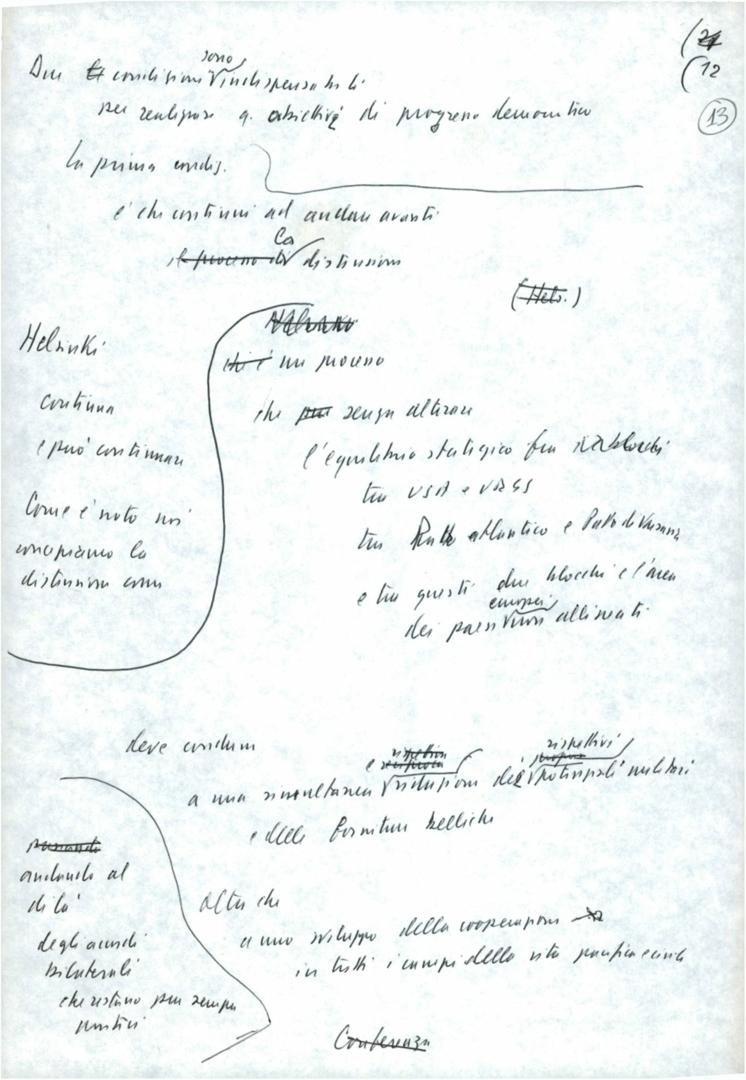 (21
(12
13
sono
Due condizioni indispensabili
per realizzare q. obiettivi di progresso democratico
La prima condiz.
è che continui ad andare avanti
La
il processo di distensione
(Hels.)
Helsinki
continua
e può continuare
Come è noto noi
concepiamo la
distensione come
Helsinki
che è un processo
che può senza alterare
l'equilibrio strategico fra blocchi
tra USA e URSS
tra Patto atlantico e Patto di Varsavia
e tra questi due blocchi e l'area
europei
dei paesi non allineati
deve condurre
rispettivi
e reciproca
a una simultanea riduzione dei potenziali militari
e delle forniture belliche
passando
andando al
di là
degli accordi
bilaterali
che restano pur sempre
positivi
oltre che
a uno sviluppo della cooperazione
in tutti i campi della vita pacifica e civile
Conferenza